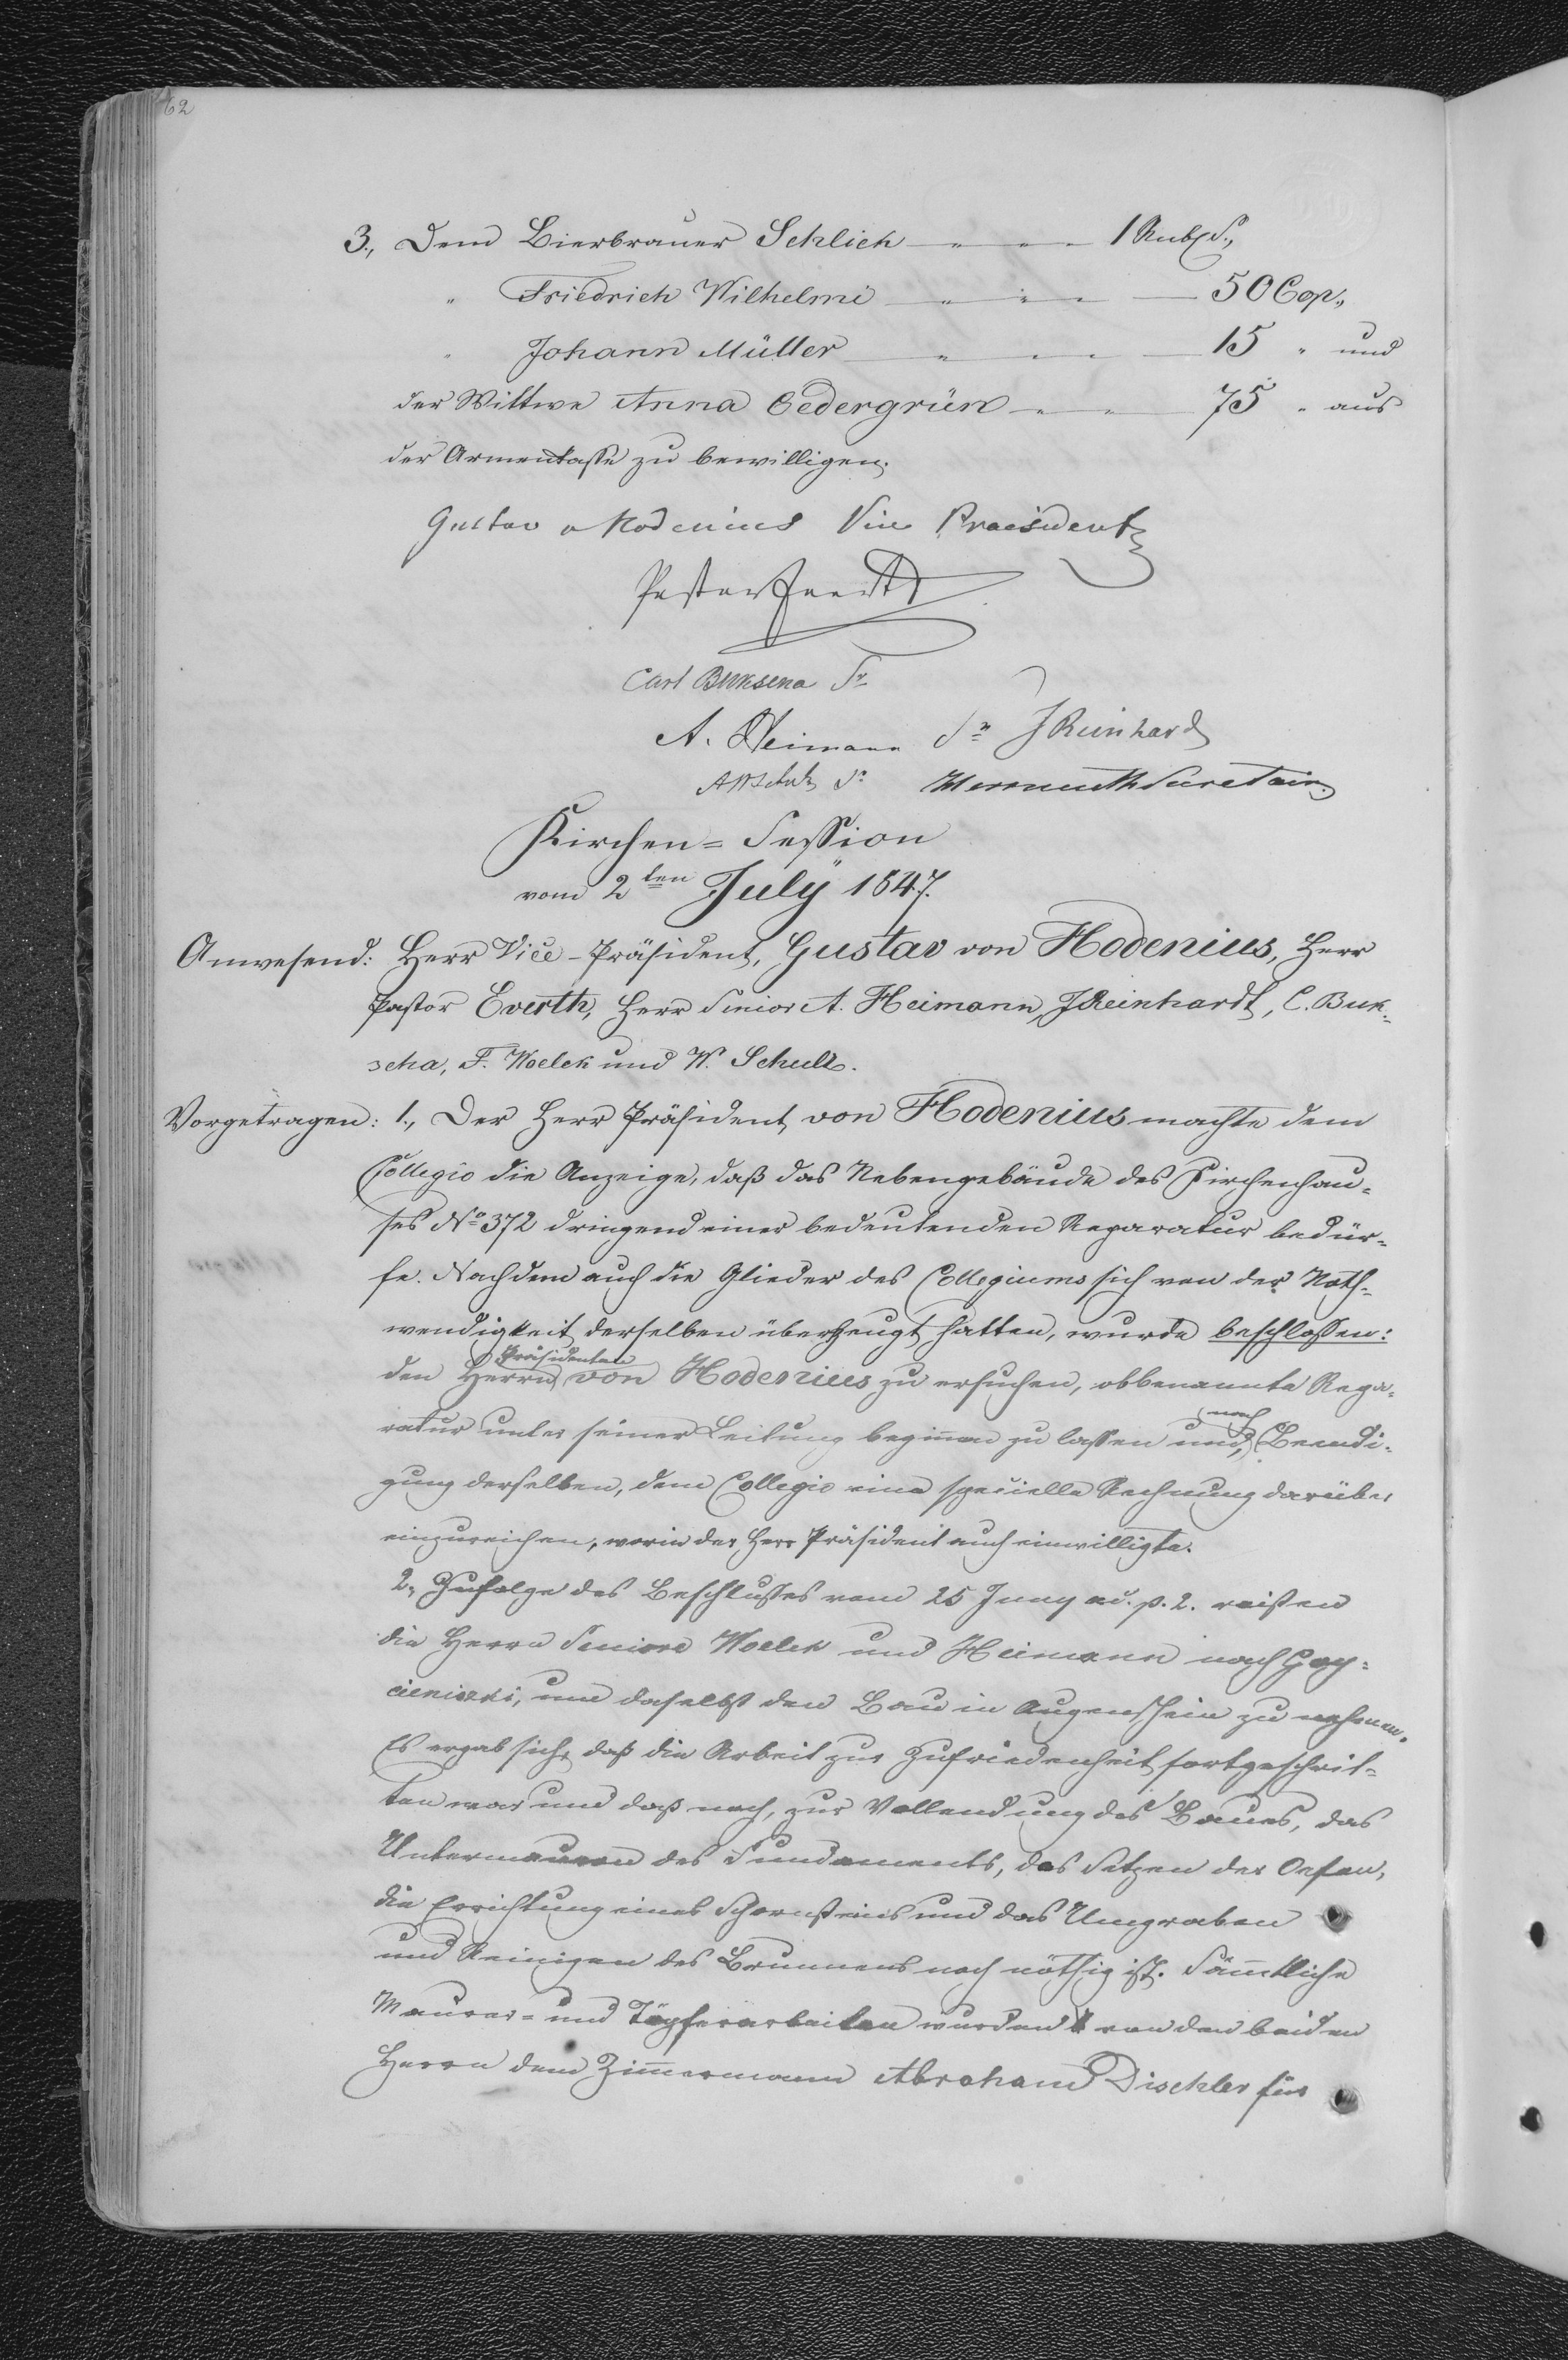 62
3., Dem Bierbrauer Schlich — " — " — 1 Rub. S.,
" Friedrich Wilhelmi — " — " — " — 50 Cop.,
" Johann Müller — " — " — " — 15 " und
der Wittwe Anna Cedergrün — " — " — 75 " aus
der Armenkasse zu bewilligen.
Gustav v Hodenius Vice Praesident
Pastor Everth
Carl Buksena Sr
A. Heimann Sr J Reinhard
A W Schulz Sr Secretair.
Kirchen=Session
vom 2ten July 1847.
Anwesend: Herr Vice-Präsident, Gustav von Hodenius, Herr
Pastor Everth, Herr Senior A. Heimann, J Reinhardt, C. Buk-
scha, F. Woelck und W. Schulz.
Vorgetragen: 1., Der Herr Präsident von Hodenius machte dem
Collegio die Anzeige, daß das Nebengebäude des Kirchenhau-
ses No 372 dringend einer bedeutenden Reparatur bedür-
fe. Nachdem auch die Glieder des Collegiums sich von der Noth-
wendigkeit derselben überzeugt hatten, wurde beschlossen:
den Herrn Präsidenten von Hodenius zu ersuchen, obbenannte Repa-
ratur unter seiner Leitung beginnen zu lassen und, nach Beendi-
gung derselben, dem Collegio eine specielle Rechnung darüber
einzureichen, worin der Herr Präsident auch einwilligte.
2., Zufolge des Beschlusses vom 25 Juny ad. p. 2. reisten
die Herrn Seniore Woelck und Heimann nach Goy-
cieniszki, um daselbst den Bau in Augenschein zu nehmen.
Es ergab sich, daß die Arbeit zur Zufriedenheit fortgeschrit-
ten war und daß noch, zur Vollendung des Baues, das
Untermauern des Fundaments, das Setzen der Oefen,
die Errichtung eines Schornsteins und das Umgraben
und Reinigen des Brunnens noch nöthig ist. Sämmtliche
Maurer- und Töpferarbeiten wurden von den beiden
Herrn dem Zimmermann Abraham Dischler für